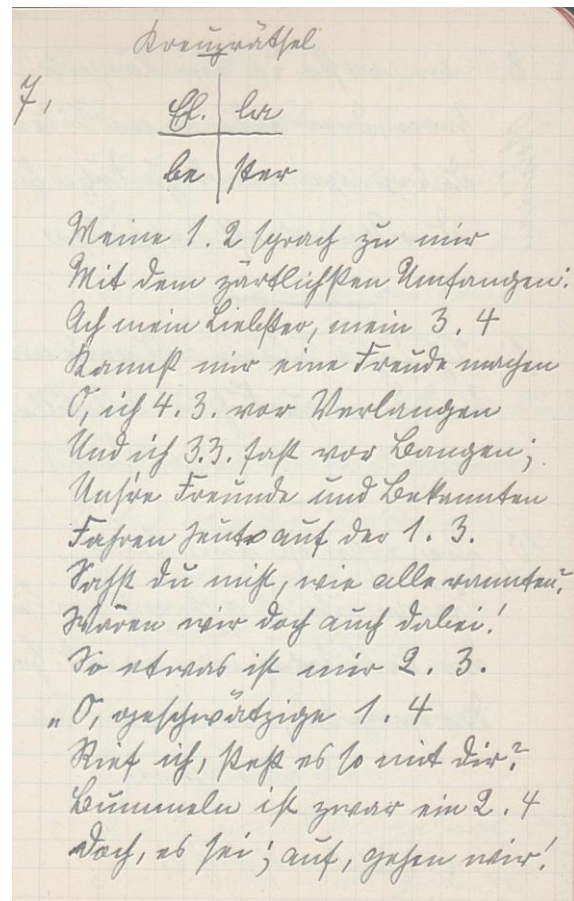 Kreuzrätsel
7, El. la
be ster
Meine 1. 2 sprach zu mir
Mit dem zärtlichsten Umfangen:
Ach mein Liebster, mein 3. 4
Kannst mir eine Freude machen
O, ich 4. 3. vor Verlangen
Und ich 3.3. fast vor Bangen;
Uns're Freunde und Bekannten
Fahren heute auf der 1. 3.
Sahst du nicht, wie alle rannten?
Wären wir doch auch dabei!
So etwas ist mir 2. 3.
„O, geschwätzige 1. 4
Rief ich, steht es so mit dir?
Bummeln ist zwar ein 2. 4
Doch, es sei; auf, gehen wir!